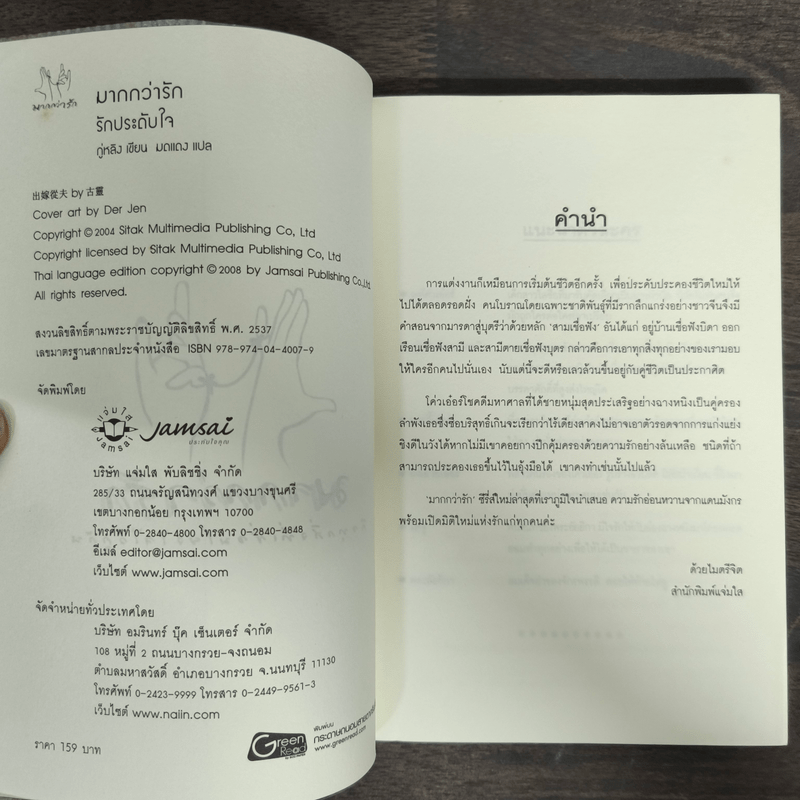 มากกว่ารัก
มากกว่ารัก
รักประดับใจ
กู่หลิง เขียน มดแดง แปล
出嫁從夫 by 古靈
Cover art by Der Jen
Copyright © 2004 Sitak Multimedia Publishing Co, Ltd
Copyright licensed by Sitak Multimedia Publishing Co, Ltd
Thai language edition copyright © 2008 by Jamsai Publishing Co.,Ltd.
All rights reserved.
สงวนลิขสิทธิ์ตามพระราชบัญญัติลิขสิทธิ์ พ.ศ. 2537
เลขมาตรฐานสากลประจำหนังสือ ISBN 978-974-04-4007-9
จัดพิมพ์โดย
แจ่มใส
Jamsai
Jamsai
ประทับใจคุณ
บริษัท แจ่มใส พับลิชชิ่ง จำกัด
285/33 ถนนจรัญสนิทวงศ์ แขวงบางขุนศรี
เขตบางกอกน้อย กรุงเทพฯ 10700
โทรศัพท์ 0-2840-4800 โทรสาร 0-2840-4848
อีเมล์ editor@jamsai.com
เว็บไซต์ www.jamsai.com
จัดจำหน่ายทั่วประเทศโดย
บริษัท อมรินทร์ บุ๊ค เซ็นเตอร์ จำกัด
108 หมู่ที่ 2 ถนนบางกรวย-จงถนอม
ตำบลมหาสวัสดิ์ อำเภอบางกรวย จ.นนทบุรี 11130
โทรศัพท์ 0-2423-9999 โทรสาร 0-2449-9561-3
เว็บไซต์ www.naiin.com
ราคา 159 บาท
Green Read
พิมพ์บน
กระดาษถนอมสายตา
www.greenread
คำนำ
การแต่งงานก็เหมือนการเริ่มต้นชีวิตอีกครั้ง เพื่อประดับประคองชีวิตใหม่ให้
ไปได้ตลอดรอดฝั่ง คนโบราณโดยเฉพาะชาติพันธุ์ที่มีรากลึกแกร่งอย่างชาวจีนจึงมี
คำสอนจากมารดาสู่บุตรีว่าด้วยหลัก ‘สามเชื่อฟัง’ อันได้แก่ อยู่บ้านเชื่อฟังบิดา ออก
เรือนเชื่อฟังสามี และสามีตายเชื่อฟังบุตร กล่าวคือการเอาทุกสิ่งทุกอย่างของเรามอบ
ให้ใครอีกคนไปนั่นเอง นับแต่นี้จะดีหรือเลวล้วนขึ้นอยู่กับคู่ชีวิตเป็นประกาศิต
โค่วเอ๋อร์โชคดีมหาศาลที่ได้ชายหนุ่มสุดประเสริฐอย่างฉางหนิงเป็นคู่ครอง
ลำพังเธอซึ่งซื่อบริสุทธิ์เกินจะเรียกว่าไร้เดียงสาคงไม่อาจเอาตัวรอดจากการแก่งแย่ง
ชิงดีในวังได้หากไม่มีเขาคอยกางปีกคุ้มครองด้วยความรักอย่างล้นเหลือ ชนิดที่ถ้า
สามารถประคองเธอขึ้นไว้ในอุ้งมือได้ เขาคงทำเช่นนั้นไปแล้ว
‘มากกว่ารัก’ ซีรี่ส์ใหม่ล่าสุดที่เราภูมิใจนำเสนอ ความรักอ่อนหวานจากแดนมังกร
พร้อมเปิดมิติใหม่แห่งรักแก่ทุกคนค่ะ
ด้วยไมตรีจิต
สำนักพิมพ์แจ่มใส